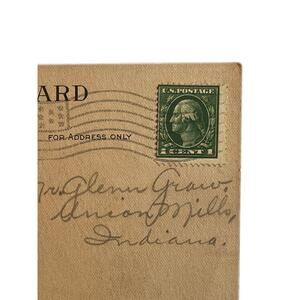 ARD
FOR ADDRESS ONLY
U.S. POSTAGE
1 CENT 1
Mr. Glenn Graw.
Union Mills,
Indiana.